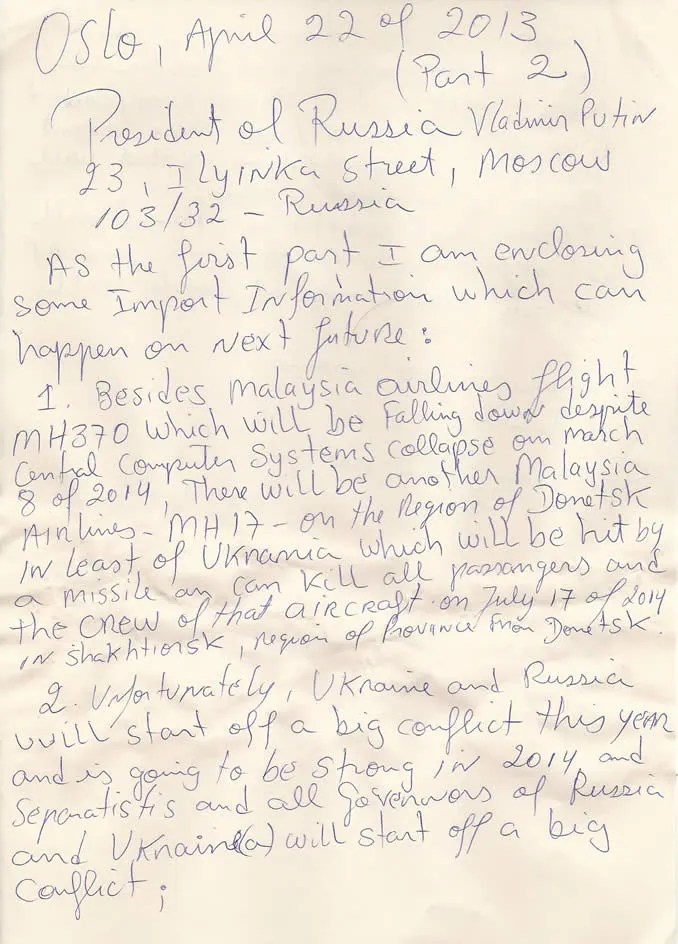 Oslo, April 22 of 2013
(Part 2)
President of Russia Vladimir Putin
23, Ilyinka Street, Moscow
103/32 - Russia
As the first part I am enclosing
some Import Information which can
happen on Next future:
1. Besides Malaysia airlines flight
MH370 which will be Falling down despite
Central Computer Systems collapse om march
8 of 2014, There will be another Malaysia
Airlines - MH17 - on the Region of Donetsk
in least of Ukrania which will be hit by
a missile an can kill all passangers and
the crew of that aircraft on July 17 of 2014
in Shakhtiorsk, region of Province from Donetsk.
2. Unfortunately, Ukraine and Russia
will start off a big conflict this year
and is going to be strong in 2014, and
Separatistis and all Governors of Russia
and Ukraine(a) will start off a big
conflict;